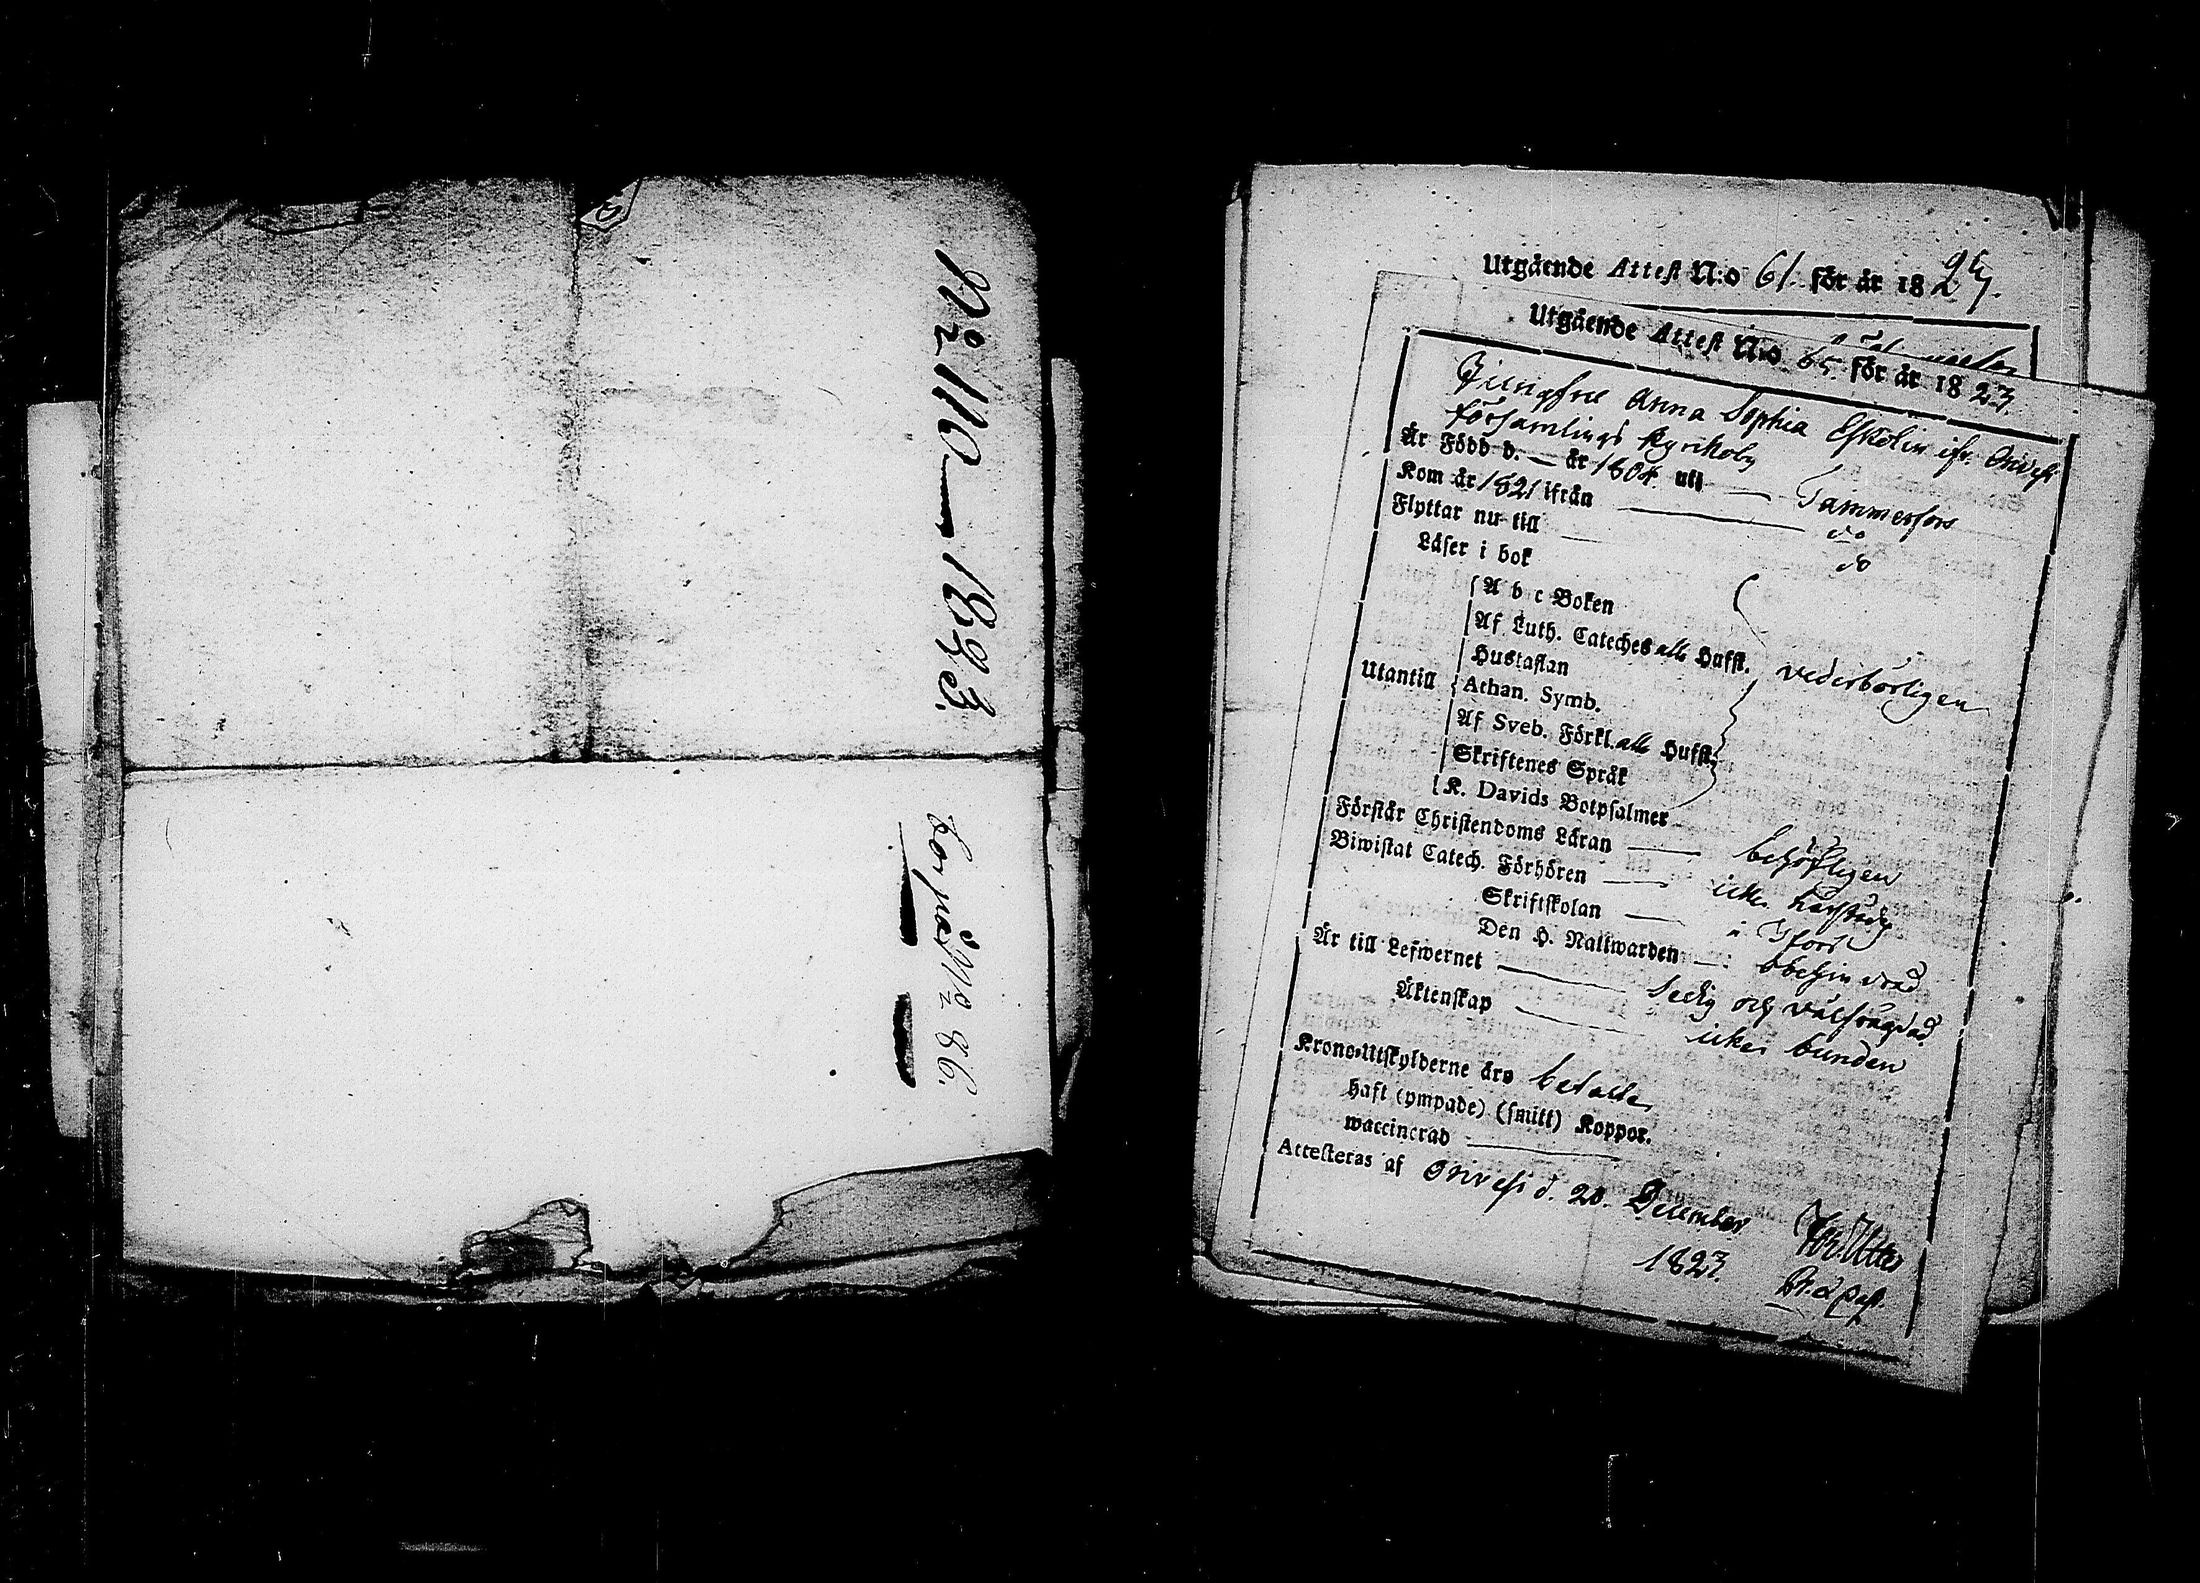 No 110 — 1823.
No 86.
Utgående Attest N:o 61. för år 18
Utgående Attest N:o 65. för år 1823.
Jungfru Anna Sophia Eskolin ifr. Orivesi
församlings Kyrikoby
Är Född d. — år 1804 uti — Tammerfors
Kom år 1821 ifrån — do
Flyttar nu till — do
Läser i bok
A b c Boken
Af Luth. Cateches alla Hufst.
Hustaflan
Utantill Athan. Symb. vederbörligen
Af Sveb. Förkl. alla Hufst.
Skriftenes Språk
K. Davids Botpsalmer
Förstår Christendoms Läran — behörigen
Biwistat Catech. Förhören — icke
Skriftskolan — i Tfors
Den H. Nattwarden — obehindrad
Är till Lefwernet — sedig och välfrägdad
Äktenskap — icke bunden
Krono-Utskylderne äro betalte
haft (ympade) (smitt) Koppor.
waccinerad
Attesteras af Orivesi d. 20. December
1823.